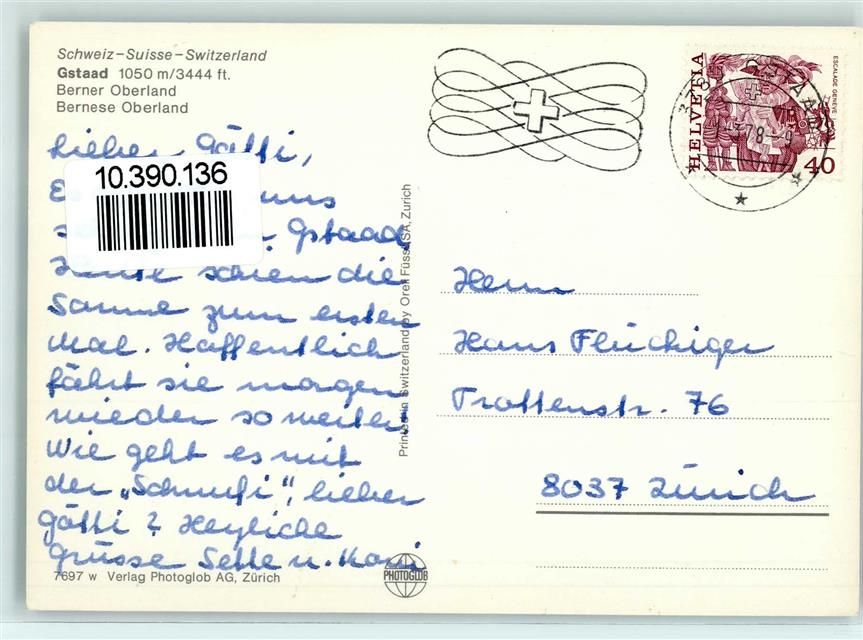 Schweiz–Suisse–Switzerland
Gstaad 1050 m/3444 ft.
Berner Oberland
Bernese Oberland
Lieber Götti,
uns
Gstaad.
Heute schien die
Sonne zum ersten
Mal. Hoffentlich
fährt sie morgen
wieder so weiter.
Wie geht es mit
der „Schnufi", lieber
Götti? Herzliche
Grüsse Sette u. Koni
10.390.136
7697 w Verlag Photoglob AG, Zürich
Printed in Switzerland by Orell Füssli SA, Zürich
PHOTOGLOB
HELVETIA
ESCALADE GENÈVE
40
GSTAAD
78-9
Herrn
Hans Flückiger
Trottenstr. 76
8037 Zürich